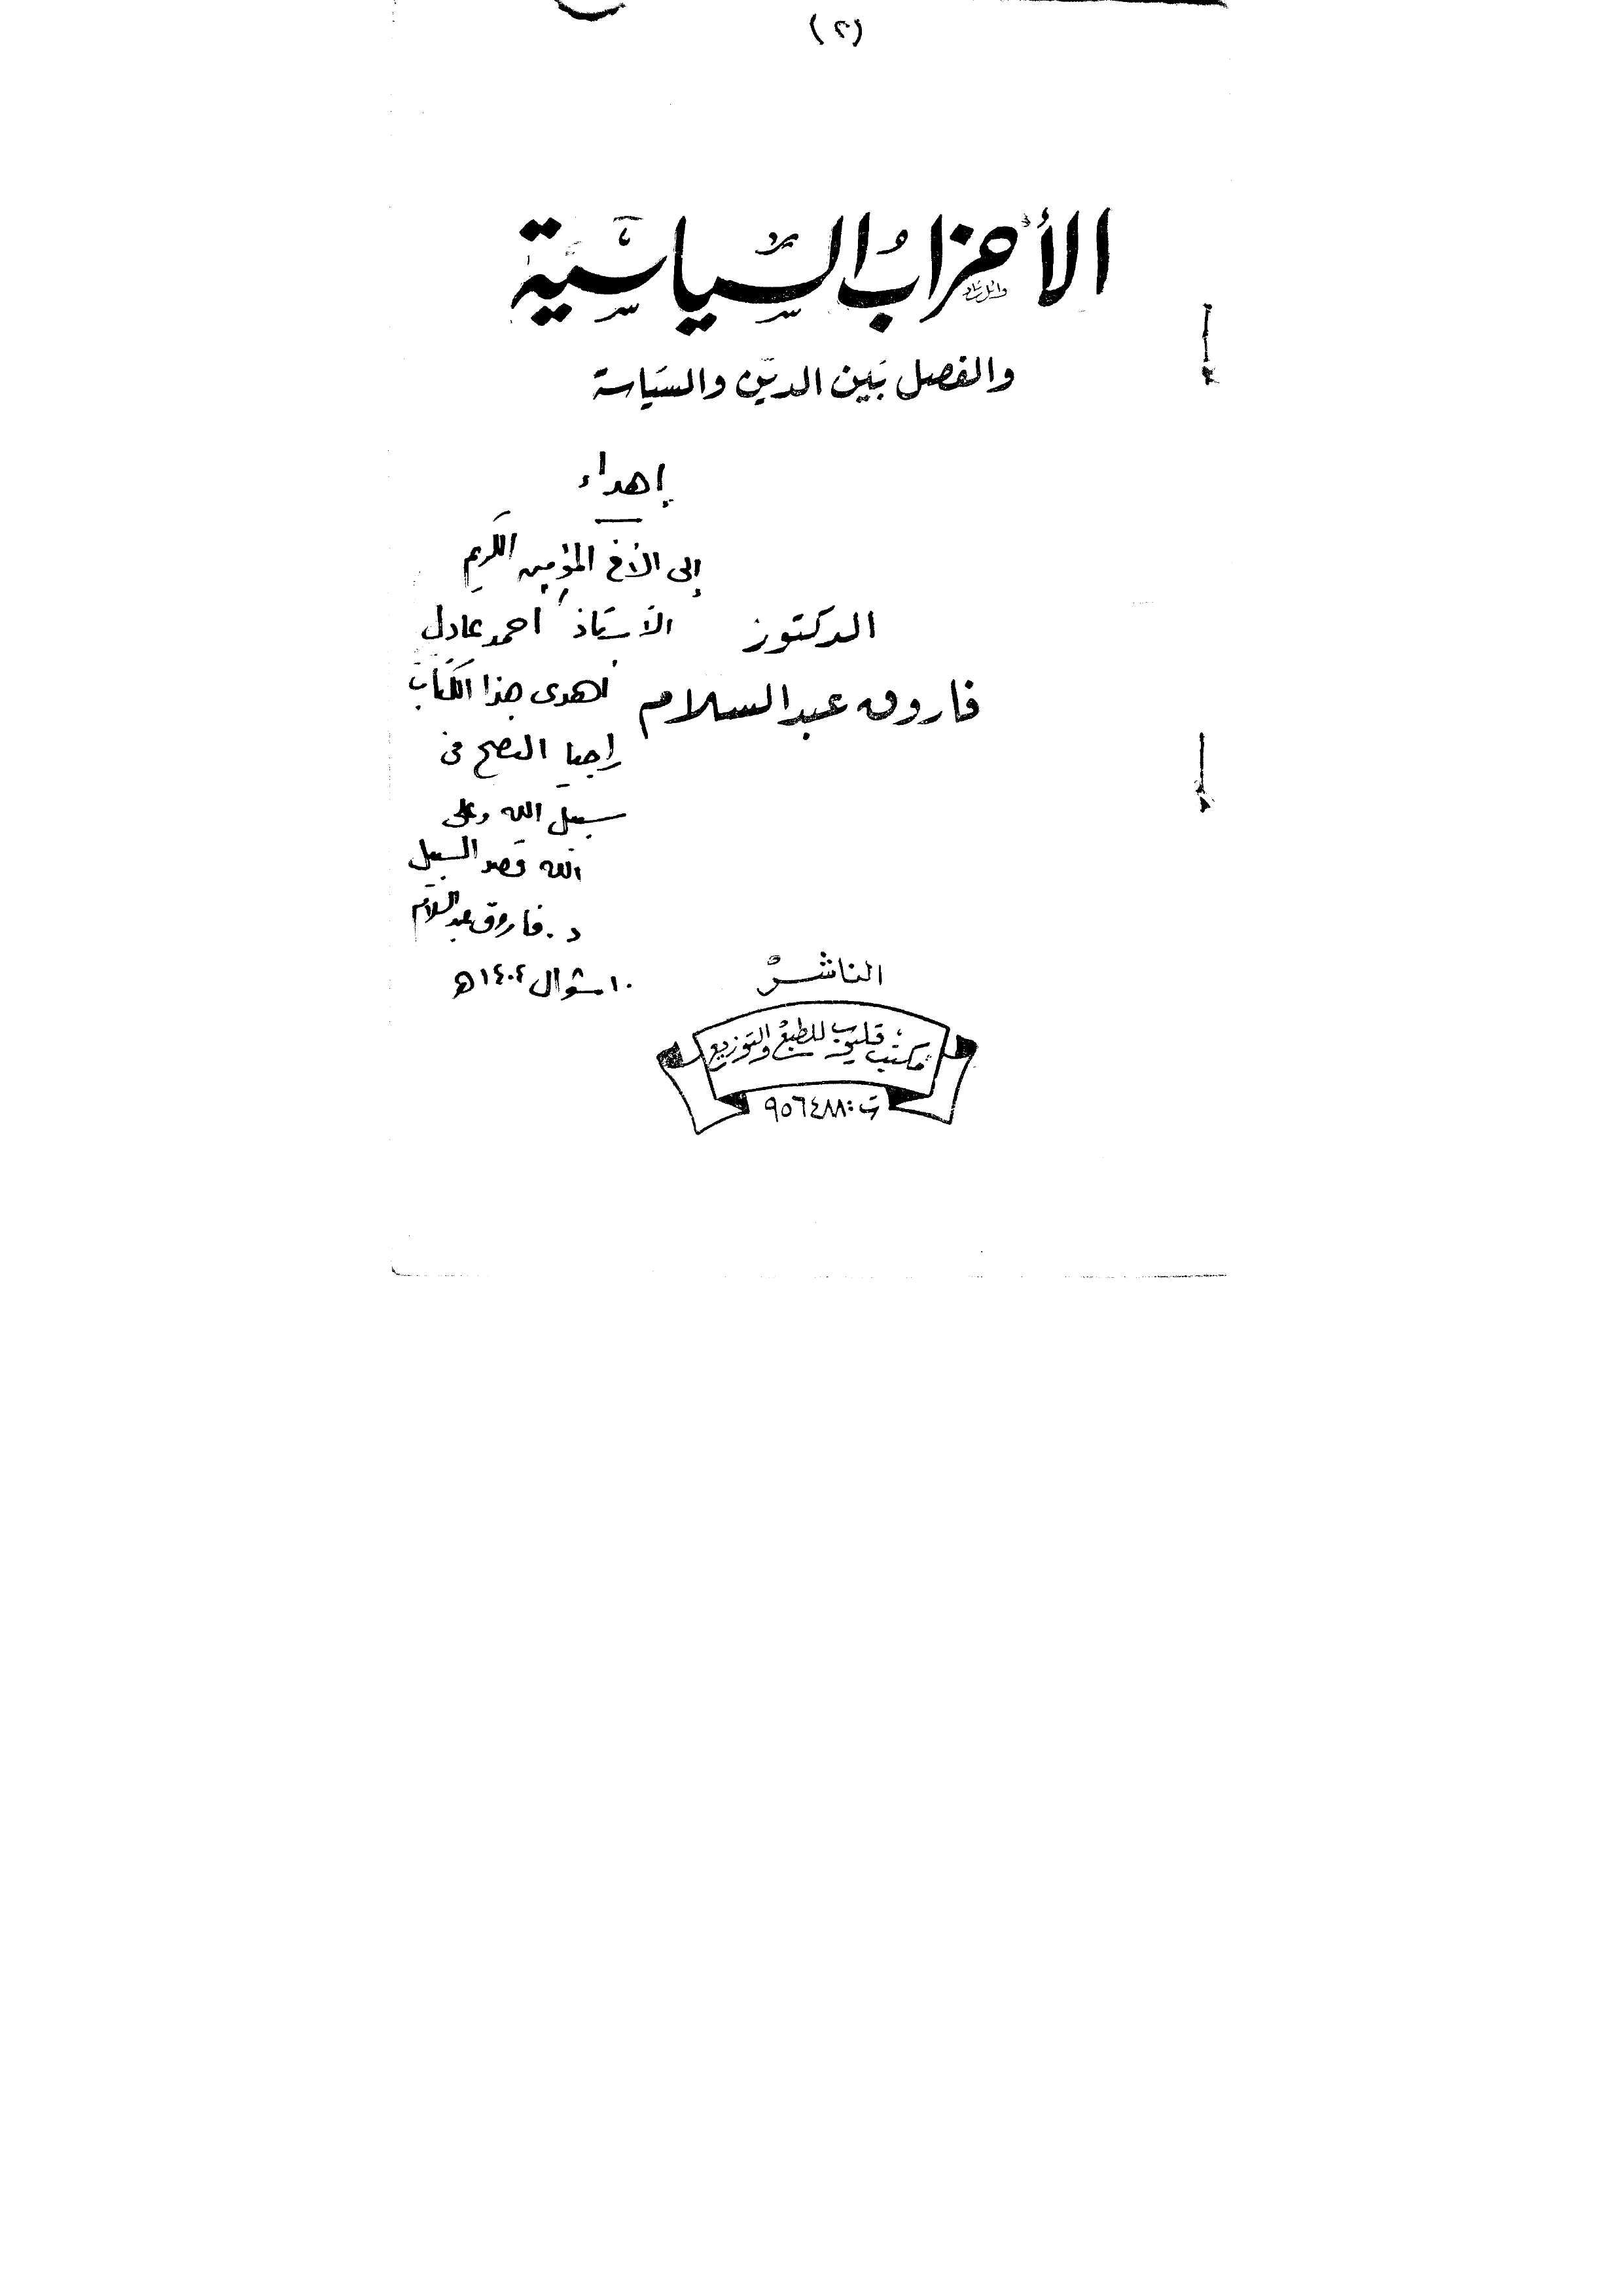 (٢)
الأحزاب السياسية
والفصل بين الدين والسياسة
إهداء
إلى الأخ المؤمن الكريم
الأستاذ أحمد عادل
أهدى هذا الكتاب
راجيا النصح فى
سبيل الله وعلى
الله قصد السبيل
د. فاروق عبد السلام
١٠ شوال ١٤٠٤ هـ
الدكتور
فاروق عبد السلام
الناشر
مكتب قليوب للطبع والتوزيع
ت: ٩٥٦٤٨٨